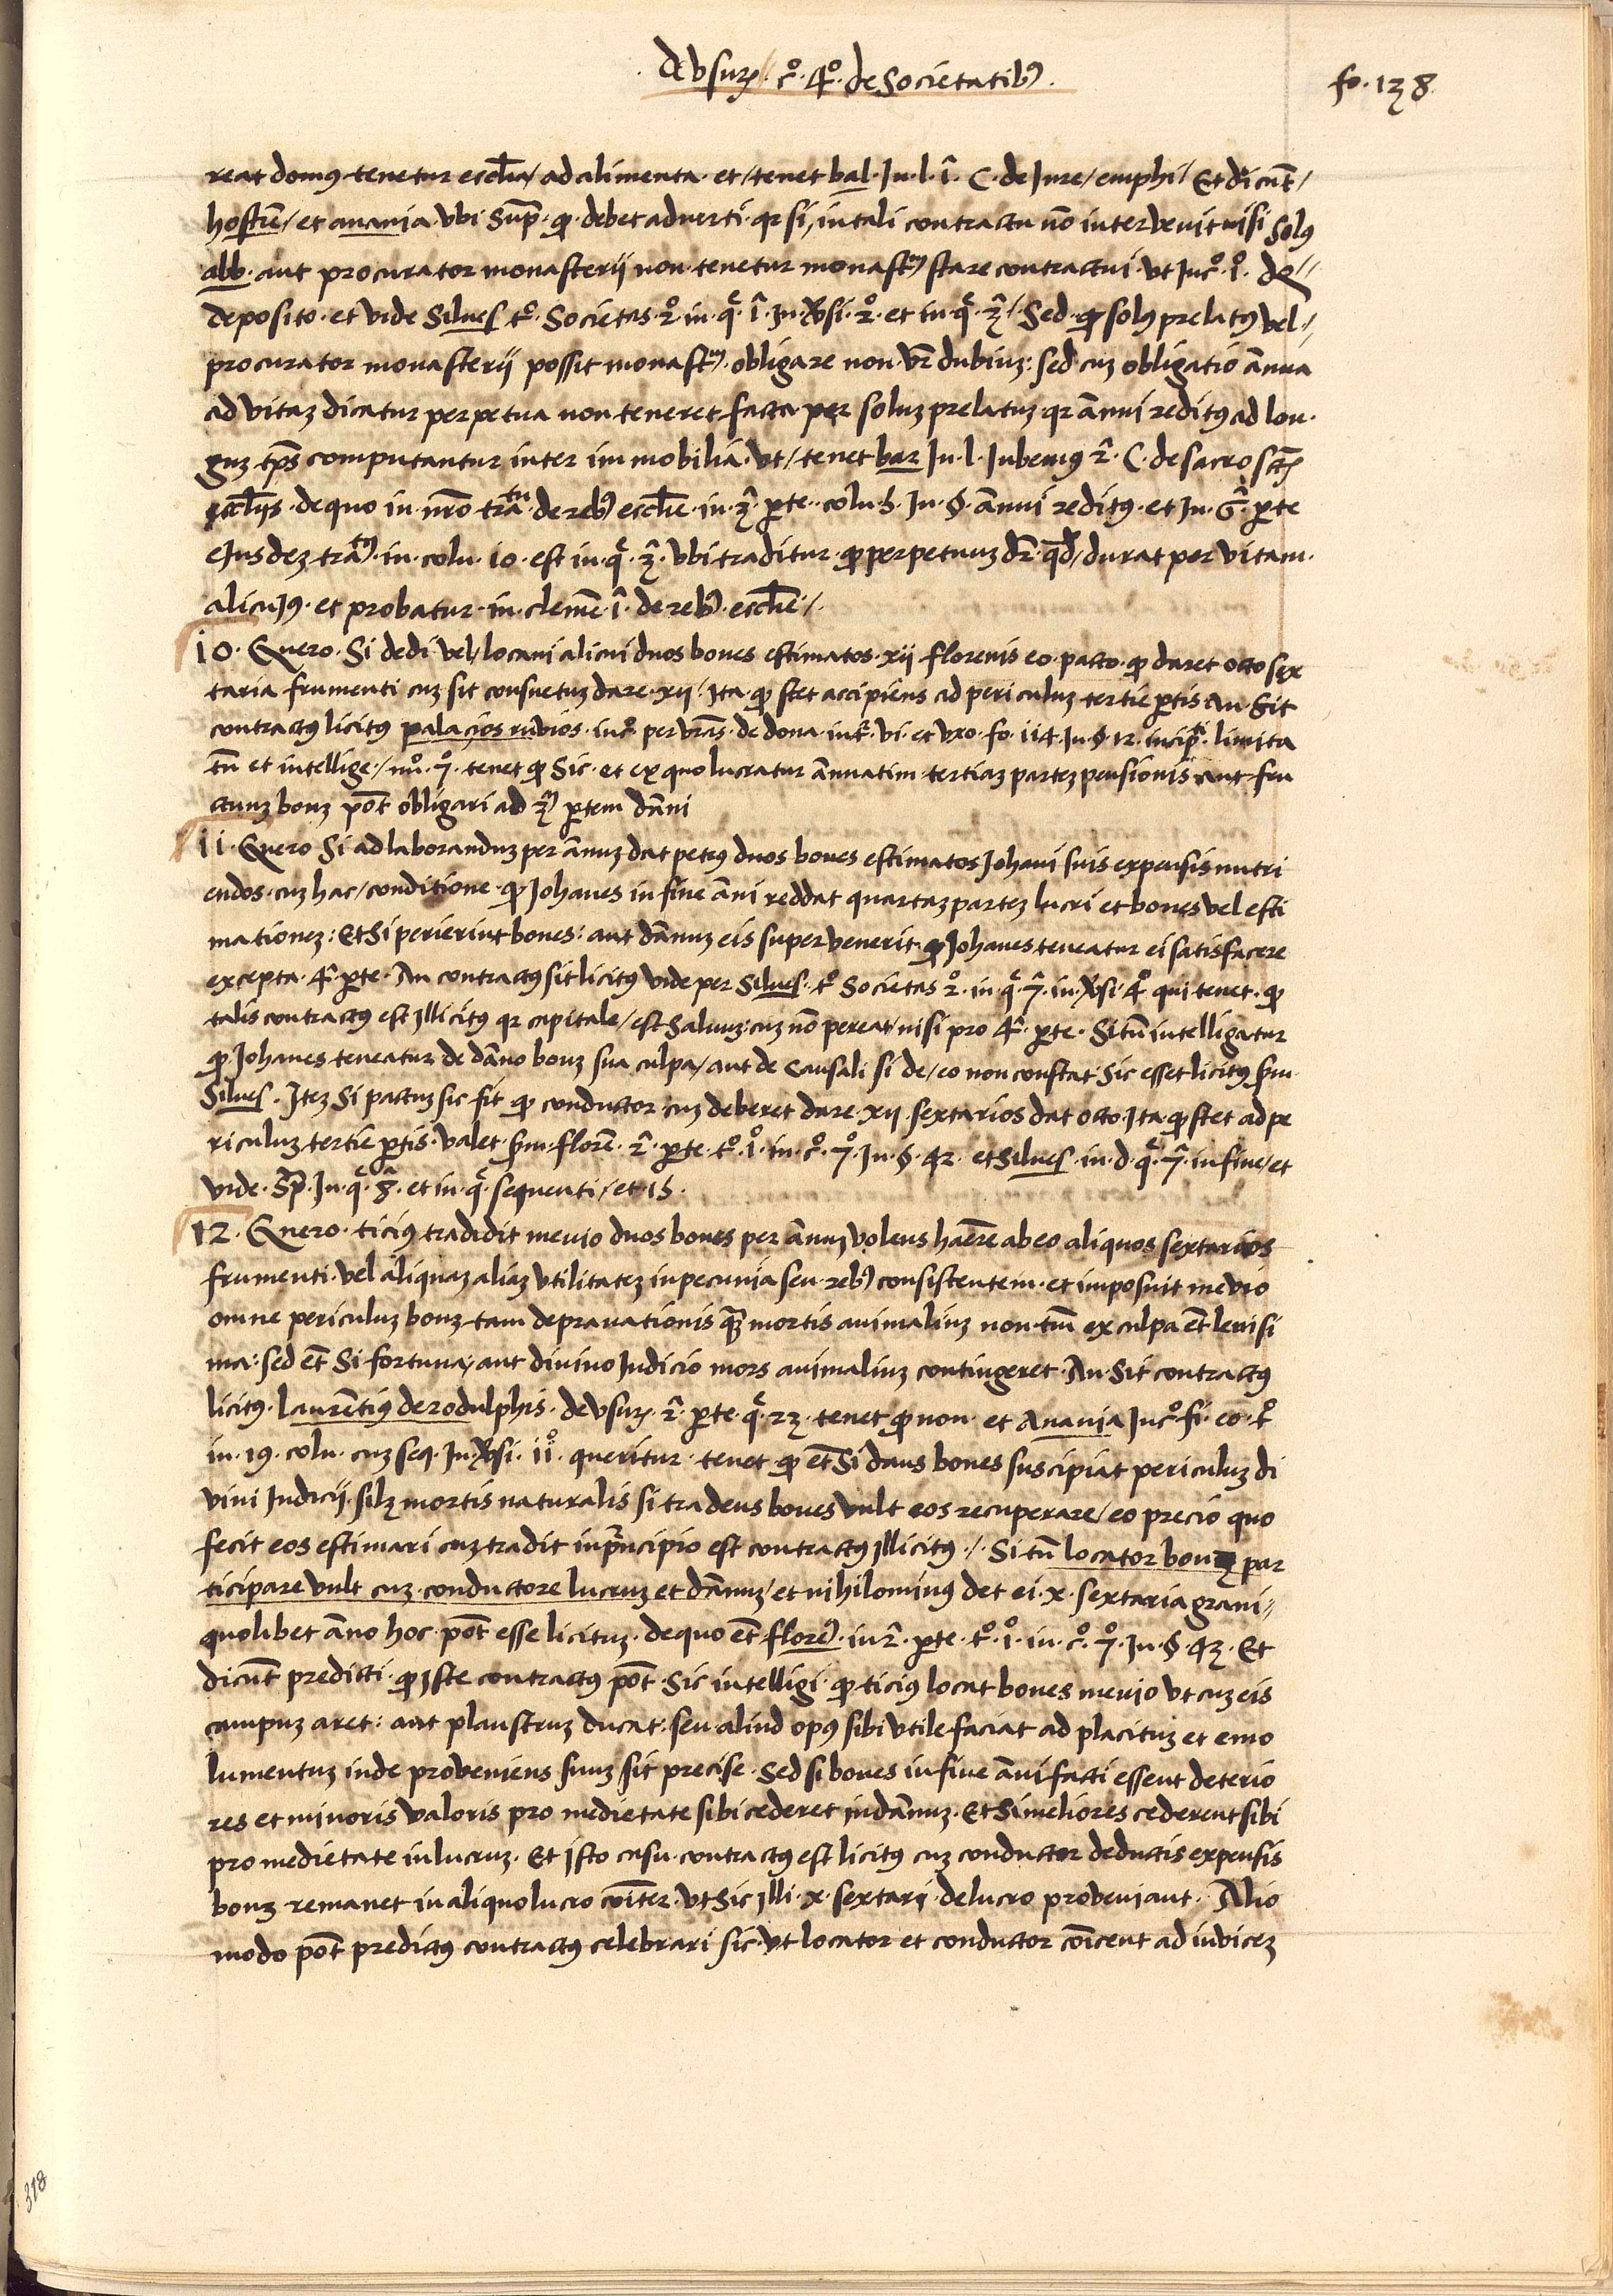 · de vsurꝫ// · cº · 4º · de Societatibꝰ ·
fo · 138
reat domꝰ tenetur ecclīa / ad alimenta · et / tenet bal · In · l · î · C · de Jure / emphi / Et dicūt /
hostiēn / et anania · vbi Sup̄ · qꝫ debet aduerti · qꝛ si, in tali contractu nō interuenit nisi Solꝰ
abb · aut procurator monasterij non tenetur monastᵐ stare contractui · vt In cº · iº · de //
deposito · et vide Silues tº · Societas · 2º · in · q̂ · î · in · v̓si · 2º · et in · q̂ · 3̂ / Sed · qꝫ solꝰ prelatꝰ vel //
procurator monasterij possit monastᵐ · obligare non vr̄ dubiuꝫ : sed cuꝫ obligatio ānua
ad vitaꝫ dicatur perpetua non teneret facta per soluꝫ prelatuꝫ qꝛ ānui reditꝰ ad lon ·
guꝫ tp̄s computantur inter immobilia · vt / tenet bar In · l · Jubemꝰ 2̂ · C · de sacro sctꝫ
ecclīis · de quo in nrō tratᵘ · de rebꝰ ecclīe · in · 3̂ · ꝑte · colu · 5 · In · § · ānui reditꝰ · et In · 6̂ · ꝑte
eJusdeꝫ tratᵘˢ · in · colu · 10 · est in · q̂ · 3̂ · vbi traditur · qꝫ perpetuuꝫ dr̄ · qd̄ / durat per vitam ·
alicuJꝰ · et probatur · in · clemē · î · de rebꝰ · ecclīe / ·
10 · Quero · Si dedi vel / locaui alicui duos boues estimatos · xij florenis eo · pacto · qꝫ daret octo sex
taria frumenti cuꝫ sit consuetuꝫ dare · xij / Ita · qꝫ stet accipiens ad periculuꝫ tertie ꝑtis An · Sit
contractꝰ licitꝰ palacios ruvios · in cº per vrās · de dona · int̂ · vi · et vxo · fo · 114 · In · § · 12 · incipᵗ · limita
tn̄ et intellige · / nuº · 7º · tenet qꝫ Sic · et ex quo lucratur ānuatim tertiaꝫ parteꝫ pensionis aut fru
ctuuꝫ bouꝫ pōt obligari ad 3ᵐ ꝑtem dāni
11 · Quero Si ad laboranduꝫ per ānuꝫ dat petrꝰ duos boues estimatos Johani suis expensis nutri
endos · cuꝫ hac / conditione · qꝫ Johanes in fine āni reddat quartaꝫ parteꝫ lucri et boues vel esti
mationeꝫ : Et Si perierint boues : aut dānuꝫ eis superuenerit · qꝫ Johanes teneatur ei satisfacere
excepta · 4̂ · ꝑte · An contractꝰ sit licitꝰ vide per Silues · tº Societas 2º · in · q̂ · 7̂ · in · v̓si · 4º qui tenet · qꝫ
talis contractꝰ est Jllicitꝰ qꝛ capitale / est Saluuꝫ : cuꝫ nō pereat / nisi pro · 4̂ · ꝑte · Si tn̄ intelligatur
qꝫ Johanes teneatur de dāno bouꝫ sua culpa / aut de Causali si de / eo non constat · Sic esset licitꝰ sm̄ ·
Silues · Iteꝫ Si pactuꝫ sic fit qꝫ conductor cuꝫ deberet dare · xij · sextarios dat octo · Ita · qꝫ stet ad pe
riculuꝫ tertie ꝑtis · valet · sm̄ · florē · 2̂ · ꝑte · tº · iº · in · cº · 7º · In · § · 42 · et Silues · in · d · q̂ · 7̂ · in fine / et
vide · Sp̄ · In · q̂ · 8̂ · et in · q̂ · sequenti / et 15 ·
12 · Quero · ticiꝰ tradidit meuio duos boues per ānuꝫ volens habēre ab eo aliquos sextarios
frumenti · vel aliquaꝫ aliaꝫ vtilitateꝫ in pecunia seu · rebꝰ consistentem · et imposuit mevio
omne periculuꝫ bouꝫ · tam deprauationis qꝫ mortis animaliuꝫ non · tm̄ ex culpa ēt leuisi
ma : sed ēt Si fortuna / aut diuino Judicio mors animaliuꝫ contingeret · An · Sit contractꝰ
licitꝰ · laurētiꝰ de rodulphis · de vsurꝫ · 2̂ · ꝑte · q̂ · 23 · tenet qꝫ non · et Anania In cº · fi · eo · tº
in · 19 · colu · cuꝫ seq · In · v̓si · 11º · queritur · tenet · qꝫ ēt Si dans boues suscipiat periculuꝫ di
vini Judicij · silꝫ mortis naturalis si tradens boues vult eos recuperare / eo precio quo
fecit eos estimari cuꝫ tradit in principio est contractꝰ Jllicitꝰ · / · Si tn̄ locator bouꝫ par
ticipare vult cuꝫ · conductore lucruꝫ et dānuꝫ / et nihilominꝰ det ei · x · sextaria grani //
quolibet āno hoc · pōt esse licituꝫ · de quo ēt · florē · in 2̂ · ꝑte · tº · iº · in · cº · 7º · In · § · 43 · Et
dicūt predicti · qꝫ Jste contractꝰ pōt · Sic intelligi · qꝫ ticiꝰ locat boues meuio vt cuꝫ eis
campuꝫ aret : aut plaustruꝫ ducat : seu aliud opꝰ sibi vtile faciat ad placituꝫ et emo
lumentuꝫ inde proveniens suuꝫ sit precise · Sed si boues in fine āni facti essent deterio
res et minoris valoris pro medietate sibi cederet in dānuꝫ · Et Si meliores cederent sibi
pro medietate in lucruꝫ · Et Jsto casu · contractꝰ est licitꝰ cuꝫ conductor deductis expensis
bouꝫ remanet in aliquo lucro cōiter · vt Sic Jlli · x · sextarij · de lucro proveniant · Alio
modo pōt predictꝰ contractꝰ celebrari sic · vt locator et conductor cōicent ad inviceꝫ
318